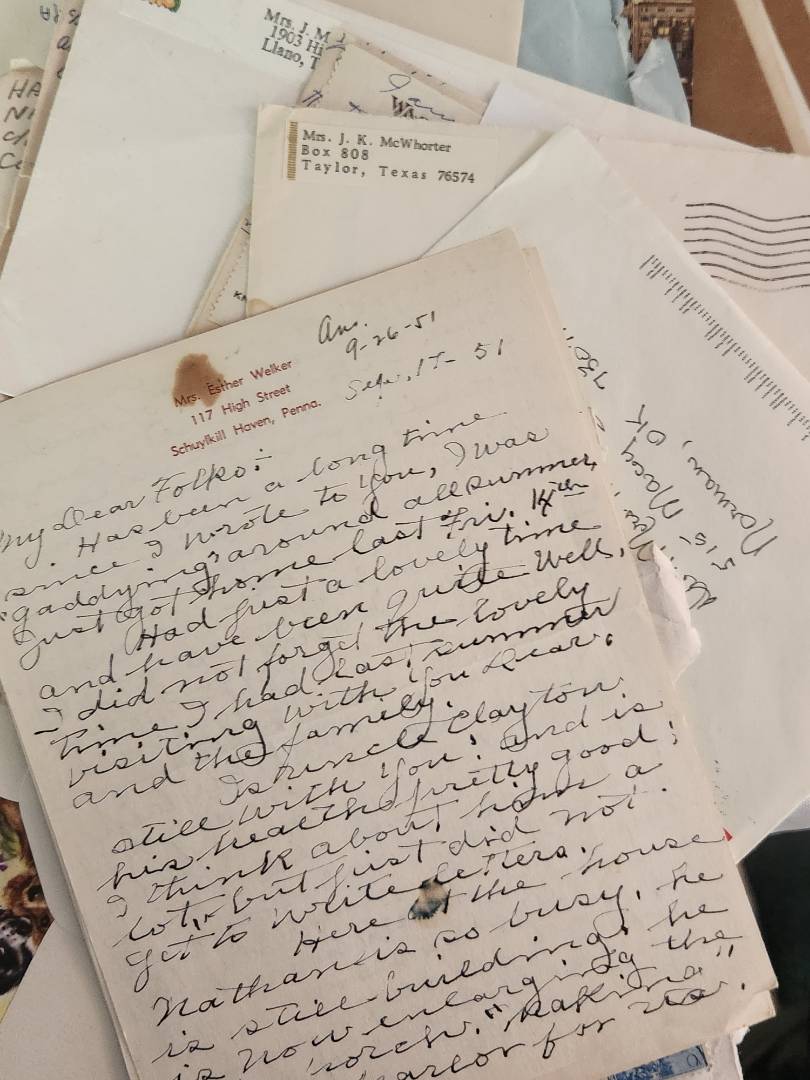 Mrs. J. M
1903 Hi
Llano, T
Mrs. J. K. McWhorter
Box 808
Taylor, Texas 76574
Norman, OK
Ans.
9-26-51
Mrs. Esther Welker
117 High Street
Schuylkill Haven, Penna.
Sep. 17- 51
My Dear Folks:-
Has been a long time
since I wrote to you, I was
"gaddying" around all summer,
Just got home last Fri. 14th
Had just a lovely time
and have been quite well,
I did not forget the lovely
time I had last summer
visiting with you Dear.
and the family.
Is uncle Clayton
still with you, and is
his health pretty good;
I think about him a
lot, but just did not
get to write letters.
Here at the house
Nathan is so busy, he
is still building, he
is now enlarging the
porch. "making"
parlor for